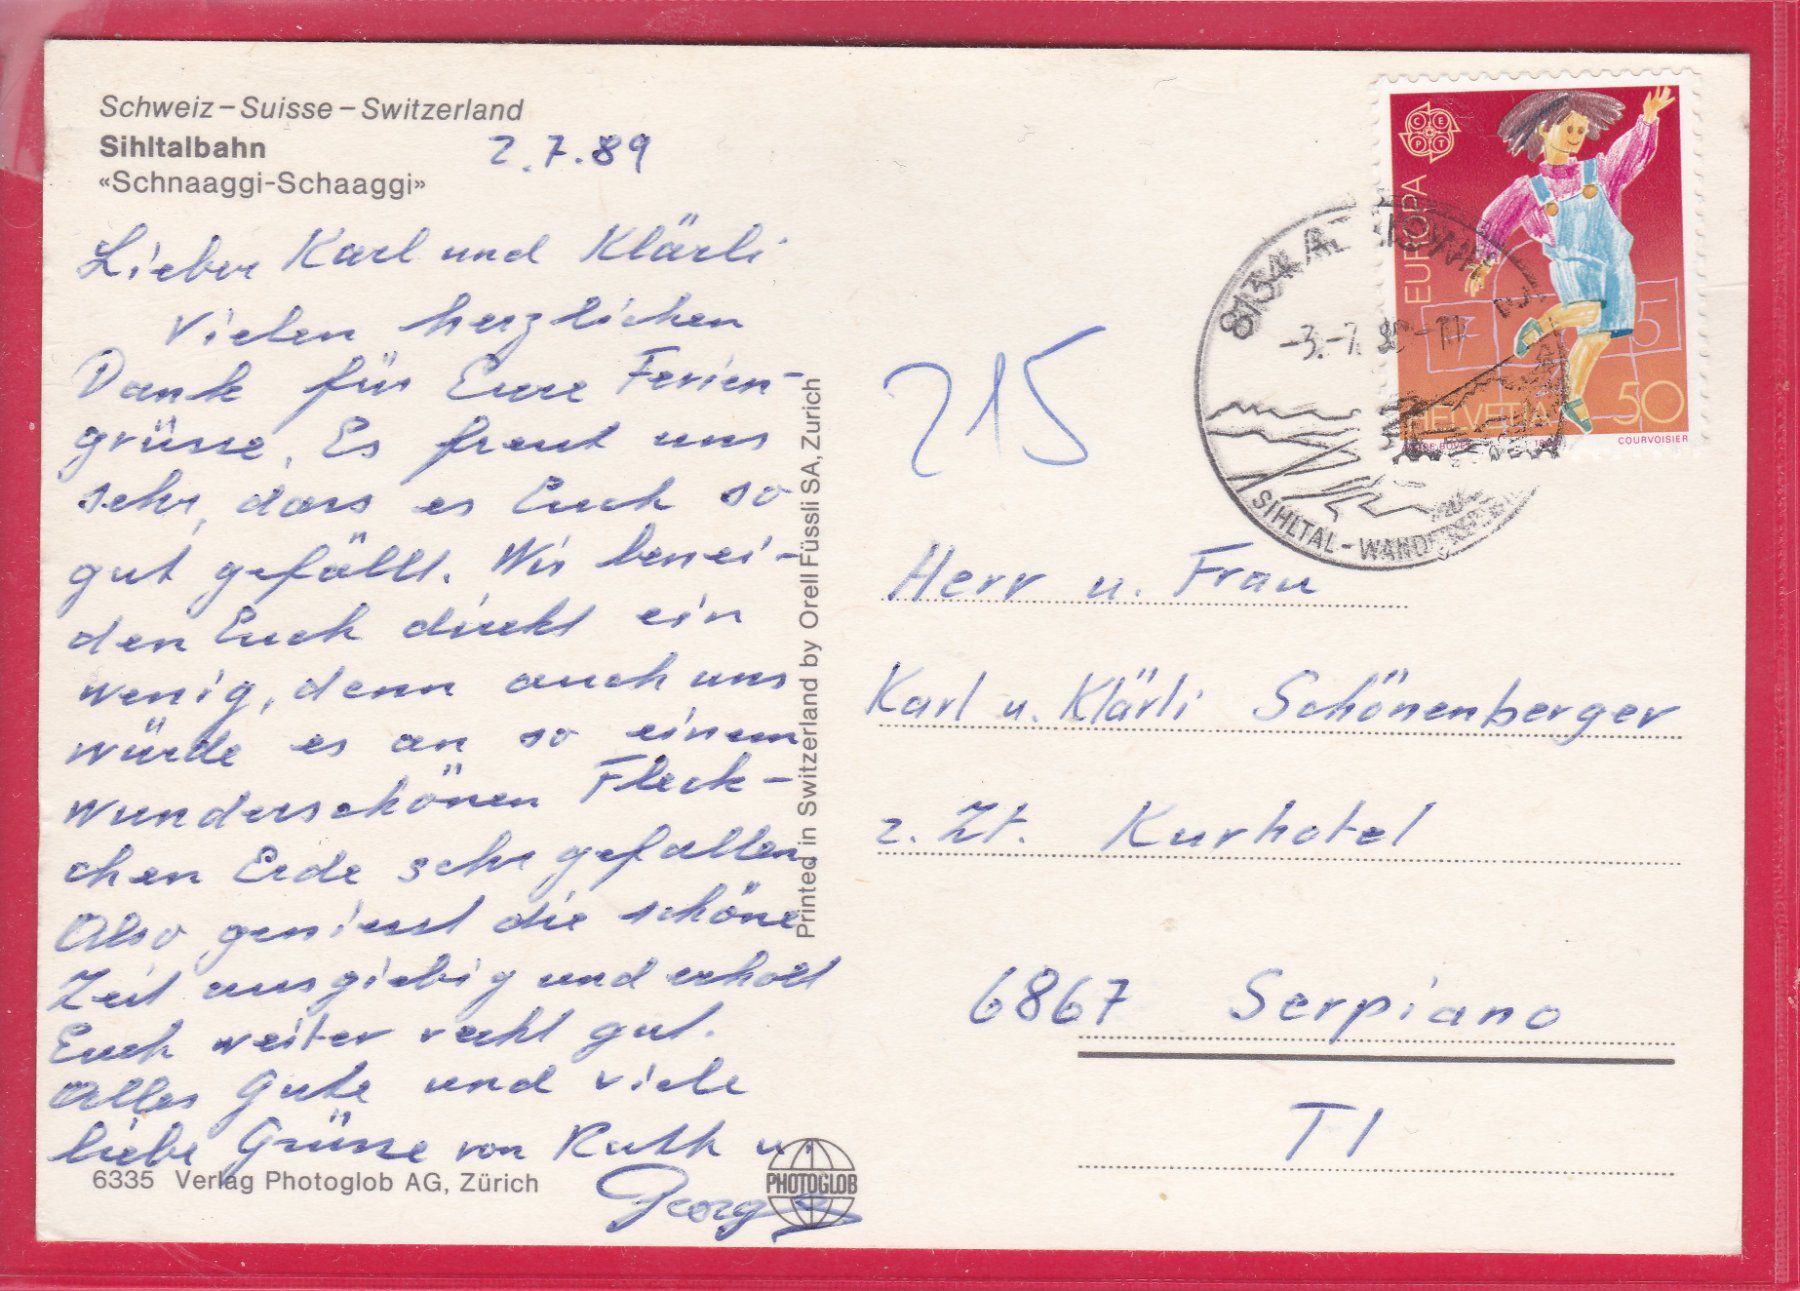 Schweiz–Suisse–Switzerland
Sihltalbahn
«Schnaaggi-Schaaggi»
2.7.89
Lieber Karl und Klärli
Vielen herzlichen
Dank für Eure Ferien-
grüsse. Es freut uns
sehr, dass es Euch so
gut gefällt. Wir benei-
den Euch direkt ein
wenig, denn auch uns
würde es an so einem
wunderschönen Fleck-
chen Erde sehr gefallen
Also geniesst die schöne
Zeit ausgiebig und erholt
Euch weiter recht gut.
Alles Gute und viele
liebe Grüsse von Ruth u.
Georg
6335 Verlag Photoglob AG, Zürich
PHOTOGLOB
Printed in Switzerland by Orell Füssli SA, Zurich
215
8134
-3.-7.
SIHLTAL-
CEPT
EUROPA
7
5
HELVETIA
50
COURVOISIER
Herr u. Frau
Karl u. Klärli Schönenberger
z. Zt. Kurhotel
6867 Serpiano
TI